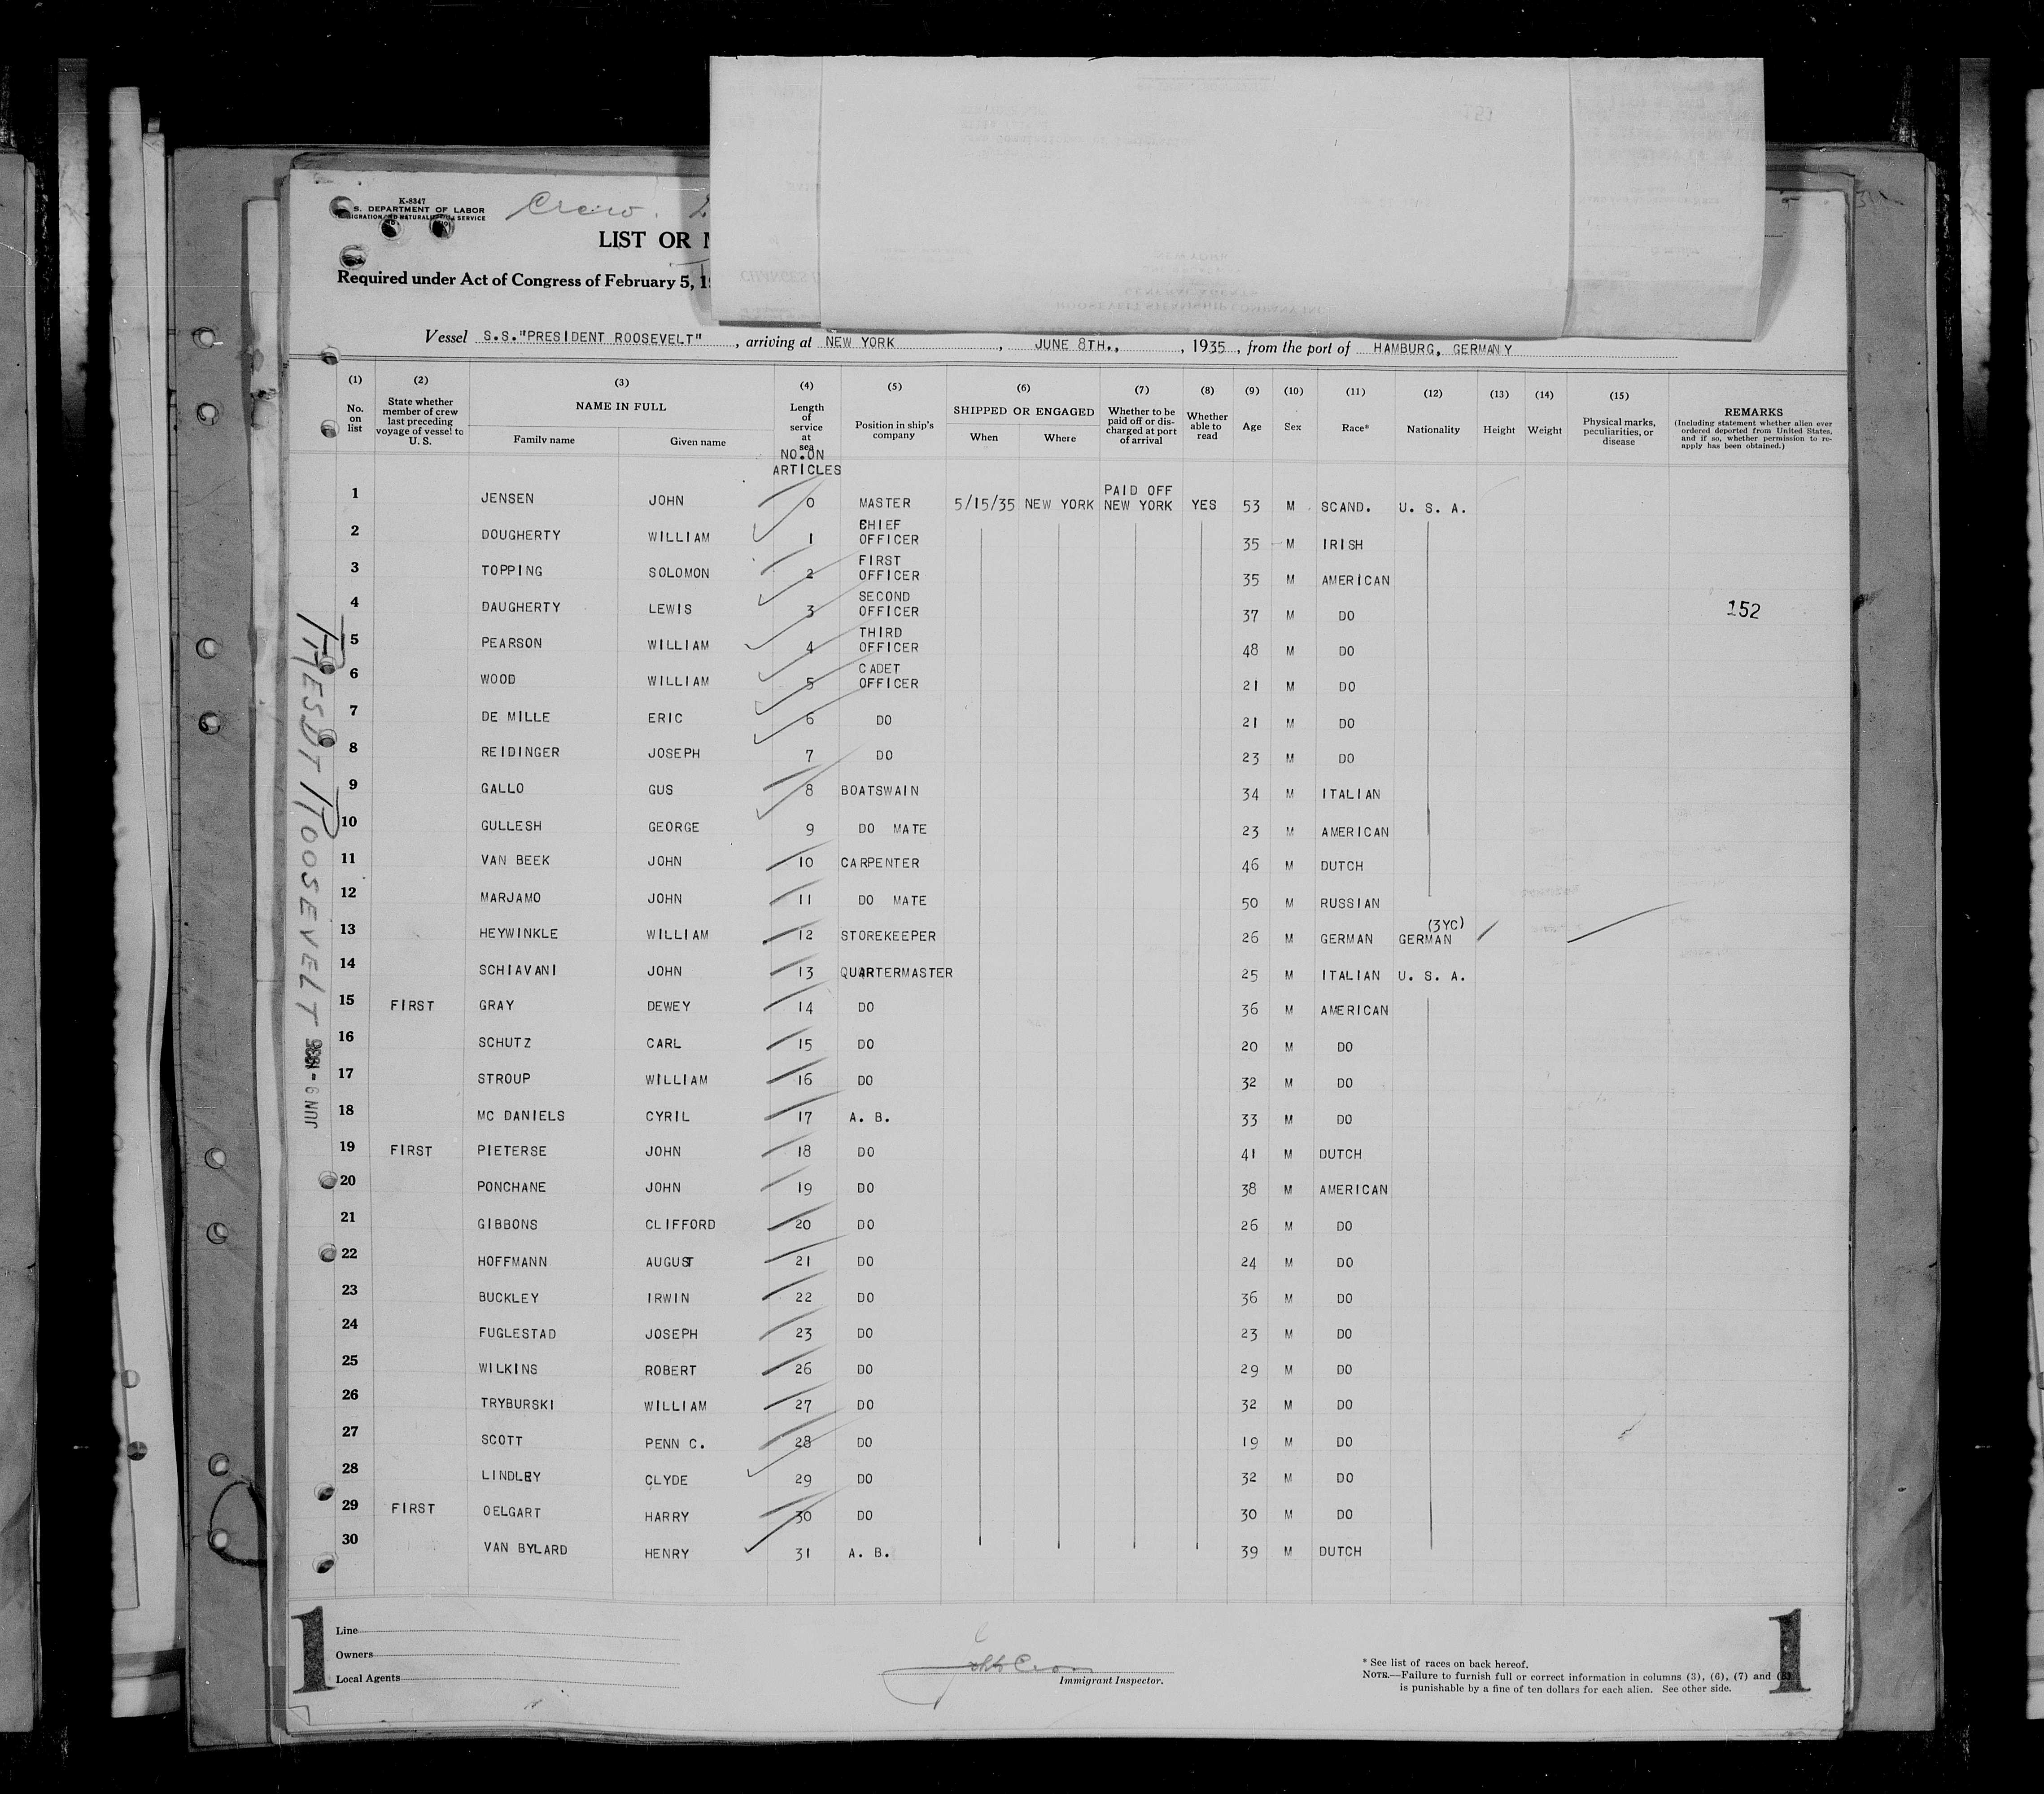 K-8347
S. DEPARTMENT OF LABOR
IMMIGRATION AND NATURALIZATION SERVICE
Crew.
LIST OR
Required under Act of Congress of February 5, 19
Vessel S.S."PRESIDENT ROOSEVELT" , arriving at NEW YORK , JUNE 8TH., , 1935 , from the port of HAMBURG, GERMANY
(1) (2) (3) (4) (5) (6) (7) (8) (9) (10) (11) (12) (13) (14) (15)
No. on list
State whether member of crew last preceding voyage of vessel to U. S.
NAME IN FULL
Family name Given name
Length of service at sea
NO. ON ARTICLES
Position in ship's company
SHIPPED OR ENGAGED
When Where
Whether to be paid off or discharged at port of arrival
Whether able to read
Age
Sex
Race*
Nationality
Height
Weight
Physical marks, peculiarities, or disease
REMARKS
(Including statement whether alien ever ordered deported from United States, and if so, whether permission to re-apply has been obtained.)
1 JENSEN JOHN 0 MASTER 5/15/35 NEW YORK PAID OFF NEW YORK YES 53 M SCAND. U. S. A.
2 DOUGHERTY WILLIAM 1 CHIEF OFFICER 35 M IRISH
3 TOPPING SOLOMON 2 FIRST OFFICER 35 M AMERICAN
4 DAUGHERTY LEWIS 3 SECOND OFFICER 37 M DO 152
5 PEARSON WILLIAM 4 THIRD OFFICER 48 M DO
6 WOOD WILLIAM 5 CADET OFFICER 21 M DO
7 DE MILLE ERIC 6 DO 21 M DO
8 REIDINGER JOSEPH 7 DO 23 M DO
9 GALLO GUS 8 BOATSWAIN 34 M ITALIAN
10 GULLESH GEORGE 9 DO MATE 23 M AMERICAN
11 VAN BEEK JOHN 10 CARPENTER 46 M DUTCH
12 MARJAMO JOHN 11 DO MATE 50 M RUSSIAN
13 HEYWINKLE WILLIAM 12 STOREKEEPER 26 M GERMAN (3YC) GERMAN
14 SCHIAVANI JOHN 13 QUARTERMASTER 25 M ITALIAN U. S. A.
15 FIRST GRAY DEWEY 14 DO 36 M AMERICAN
16 SCHUTZ CARL 15 DO 20 M DO
17 STROUP WILLIAM 16 DO 32 M DO
18 MC DANIELS CYRIL 17 A. B. 33 M DO
19 FIRST PIETERSE JOHN 18 DO 41 M DUTCH
20 PONCHANE JOHN 19 DO 38 M AMERICAN
21 GIBBONS CLIFFORD 20 DO 26 M DO
22 HOFFMANN AUGUST 21 DO 24 M DO
23 BUCKLEY IRWIN 22 DO 36 M DO
24 FUGLESTAD JOSEPH 23 DO 23 M DO
25 WILKINS ROBERT 26 DO 29 M DO
26 TRYBURSKI WILLIAM 27 DO 32 M DO
27 SCOTT PENN C. 28 DO 19 M DO
28 LINDLEY CLYDE 29 DO 32 M DO
29 FIRST OELGART HARRY 30 DO 30 M DO
30 VAN BYLARD HENRY 31 A. B. 39 M DUTCH
PRESDT ROOSEVELT
JUN - 8 1935
1
Line
Owners
Local Agents
Immigrant Inspector.
* See list of races on back hereof.
NOTE.—Failure to furnish full or correct information in columns (3), (6), (7) and (8)
is punishable by a fine of ten dollars for each alien. See other side.
1